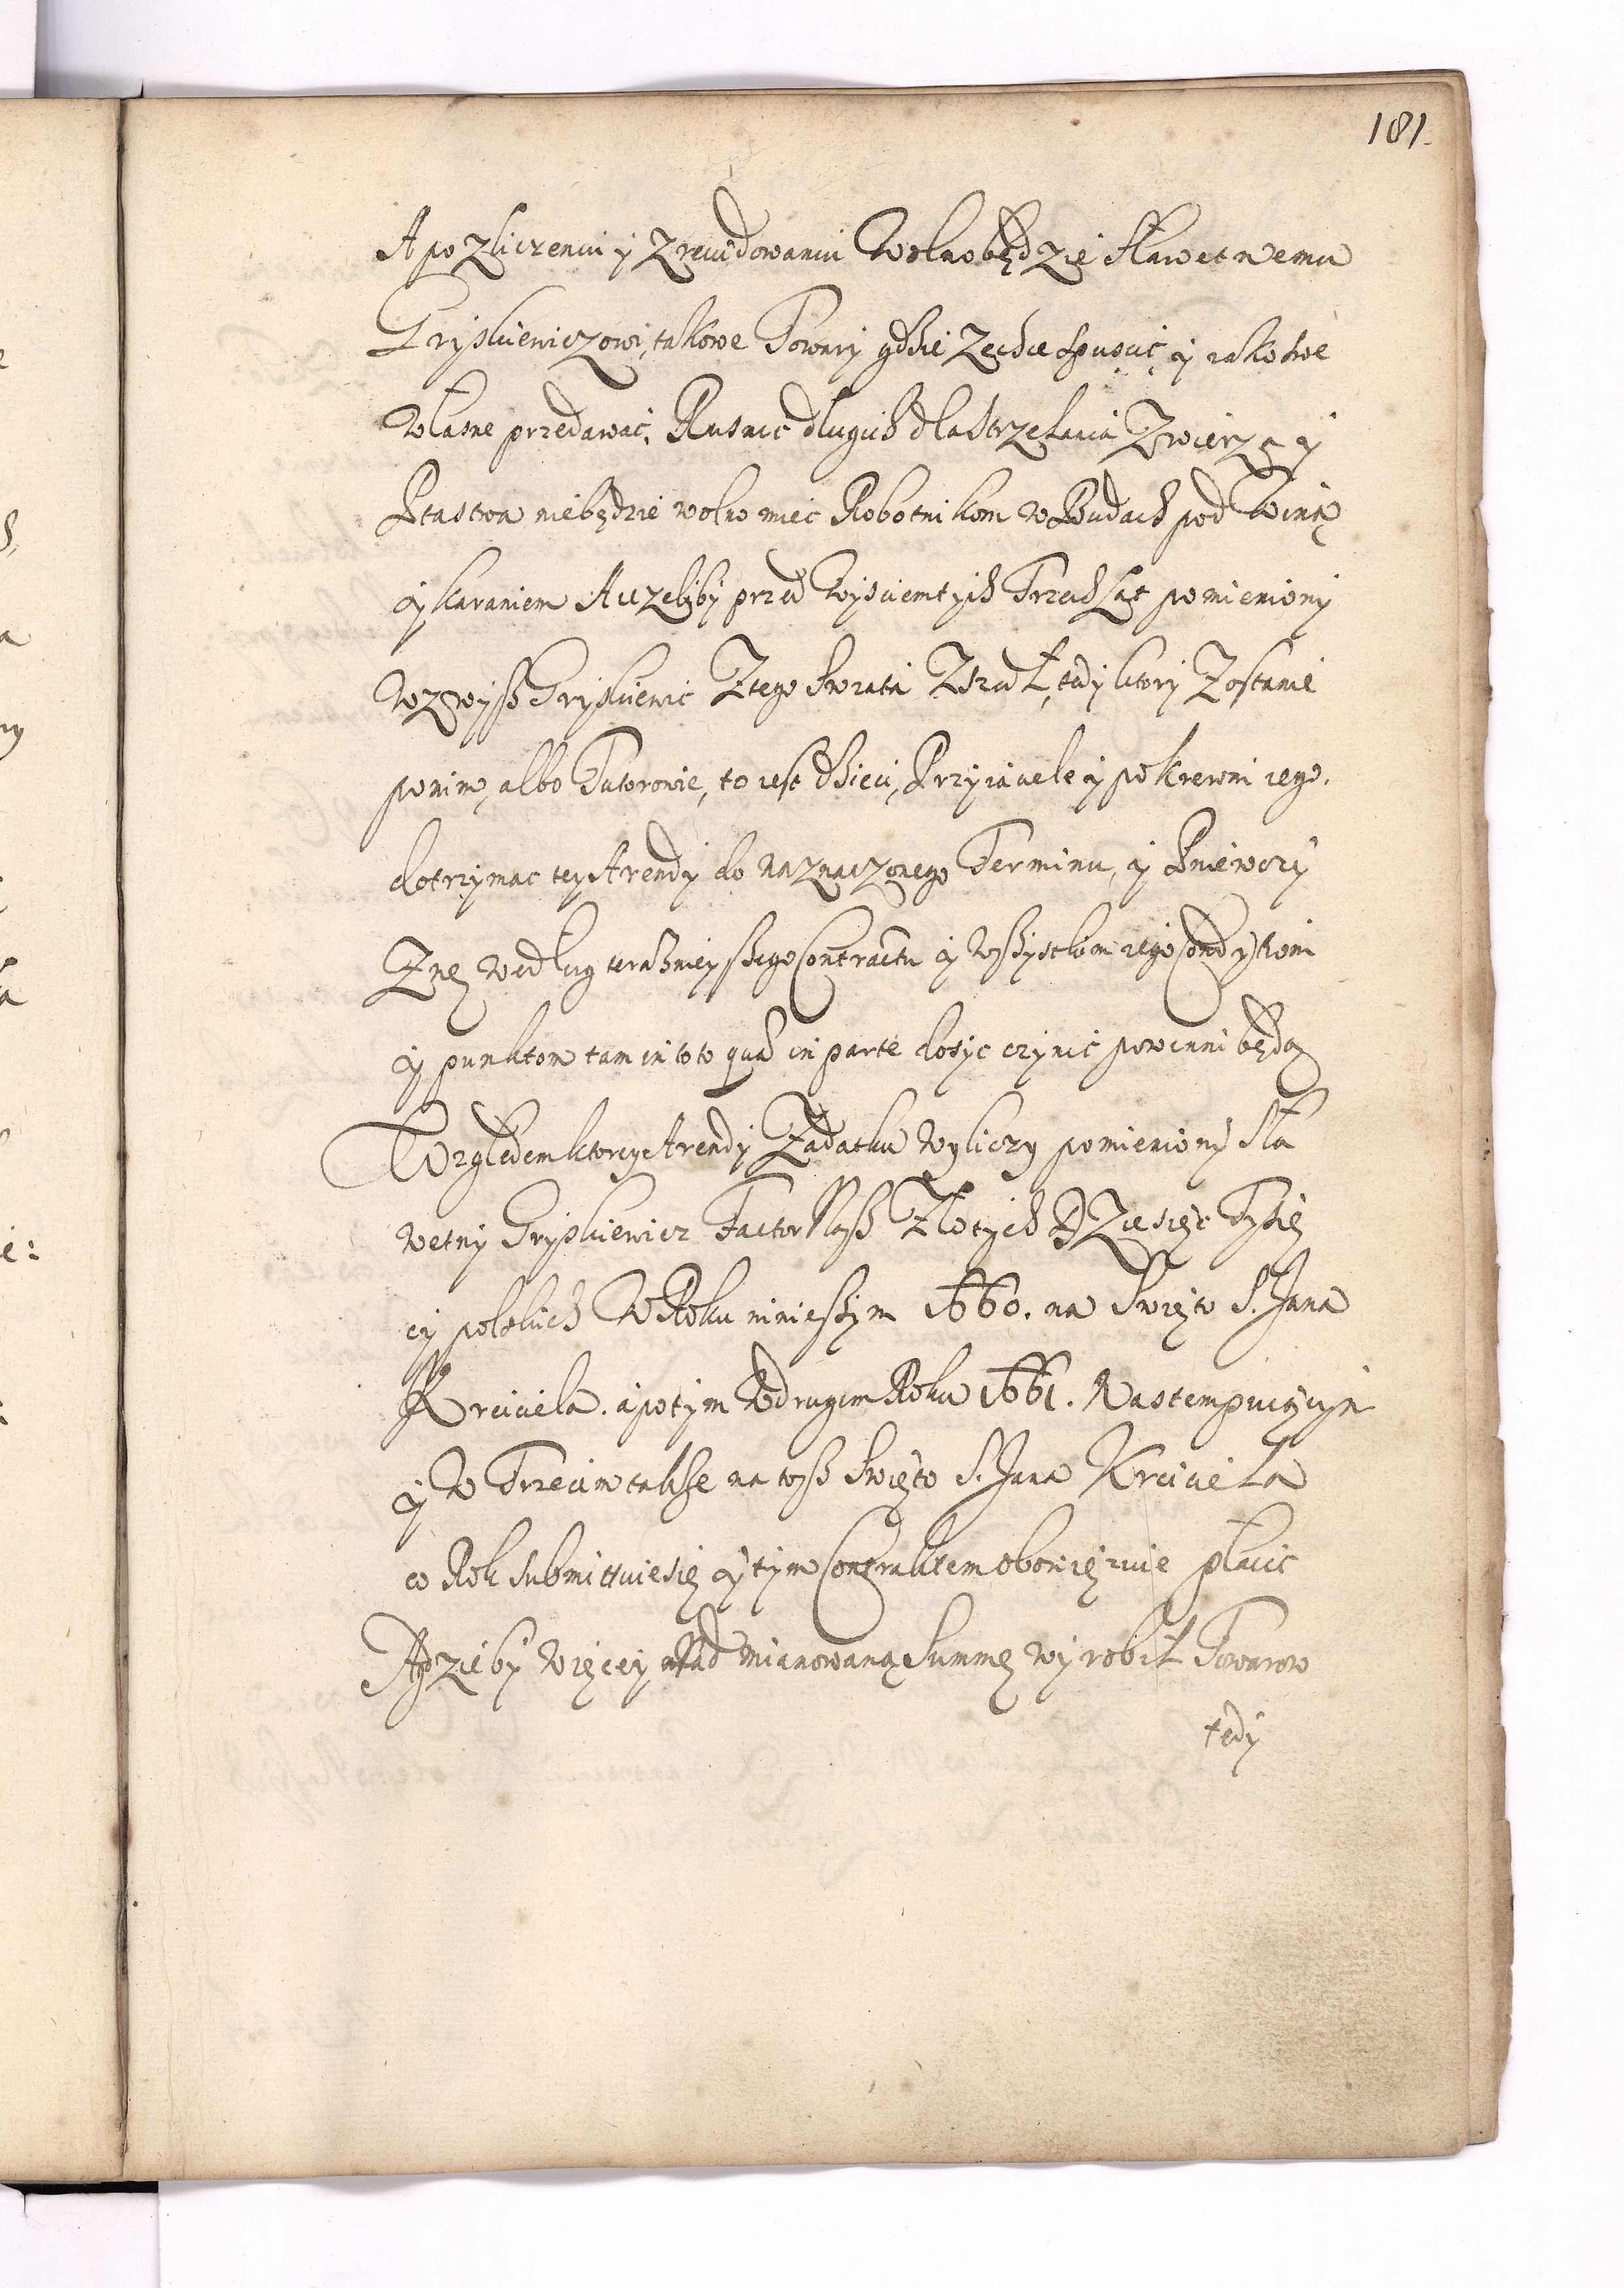 181.
A po zliczeniu y zrewidowaniu Wolno będzie sławetnemu
Gryskiewiczowi, takowe Towary gdzie zechce spuscic, y iako swe
własne przedawac. Rusnic długich dla strzelania Zwierza y
Ptastwa niebędzie wolno miec Robotnikom w Budach pod Winą
y karaniem A iezeliby przed Wysciem tych Trzech Lat pomieniony
wzwysz Gryskiewic Z tego swiata Zszedł, tedy ktory Zostanie
po nim, albo Tutorowie, to iest dzieci, Przyiaciele y pokrewni iego.
dotrzymac tey Arendy do naznaczonego Terminu, y
według teraznieyszego Contractu y wszystkim iego Condytiom
y punktom tam in toto quam in parte dosyc czynic powinni będą
Względem ktorey Arendy Zadatku wyliczy pomieniony Sła
wetny Gryskiewicz Factor Nasz Złotych Dziesięc Tysię
cy polskich W Roku ninieszym 1660. na Swięto S. Jana
Krciciela. a potym W drugim Roku 1661. Nastempuiącym
y W Trzecim takze na tosz Swięto S. Jana Krciciela
co Rok submittuie się y tym Contraktem obowięzuie płacic
A gdzieby więcey nad mianowaną Summę wyrobił Towarow
tedy